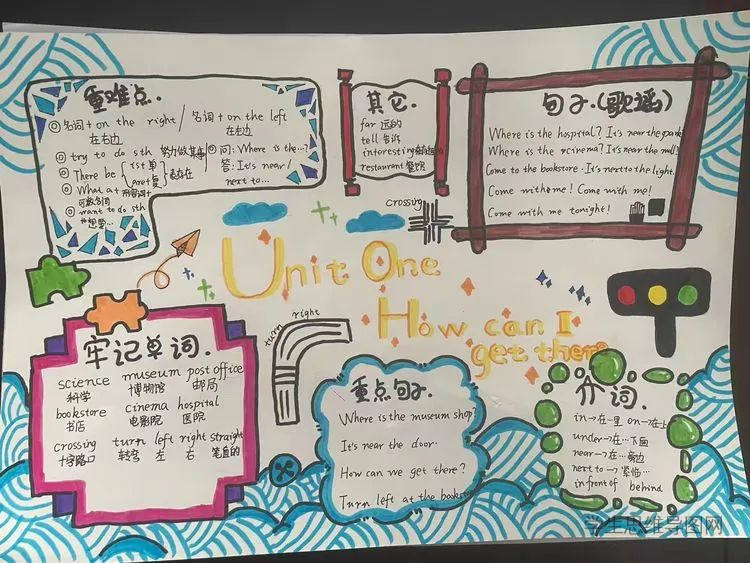 重难点.
◎名词+on the right/名词+on the left
在右边 在左边
◎try to do sth 努力做某事
◎There be { is+单 are+复 } 表存在
◎What a+形容词+可数名词
◎want to do sth
想要...
◎问: Where is the...?
答: It's near/
next to...
其它.
far 远的
tell 告诉
interesting
restaurant 餐馆
句子.(歌谣)
Where is the hospital? It's near the park.
Where is the cinema? It's near the mall!
Come to the bookstore. It's next to the light.
Come with me! Come with me!
Come with me tonight!
crossing
Unit One
How can I
get there
turn right
牢记单词.
science museum post office
科学 博物馆 邮局
bookstore cinema hospital
书店 电影院 医院
crossing turn left right straight
十字路口 转弯 左 右 笔直的
重点句子.
Where is the museum shop?
It's near the door.
How can we get there?
Turn left at the bookstore
介词.
in→在...里 on→在...上
under→在...下面
near→在...旁边
next to→紧临...
in front of behind
学生思维导图网